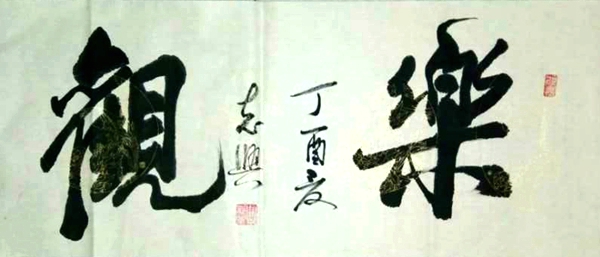 樂觀
丁酉夏
志興